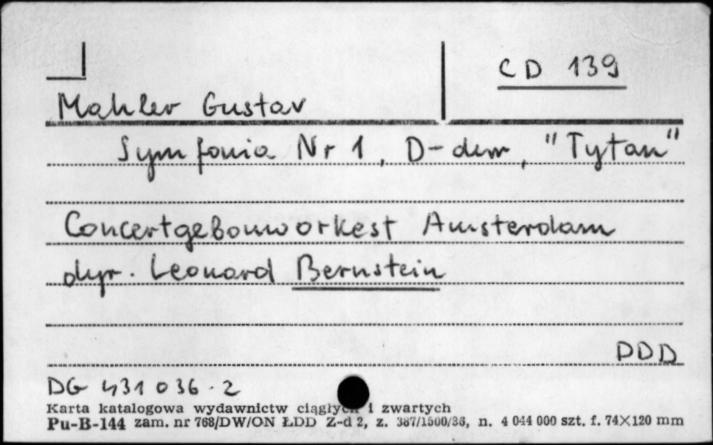 CD 139
Mahler Gustav
Symfonia Nr 1, D-dur, "Tytan"
Concertgebouworkest Amsterdam
dyr. Leonard Bernstein
DDD
DG 431 036-2
Karta katalogowa wydawnictw ciągłych i zwartych
Pu-B-144 zam. nr 768/DW/ON ŁDD Z-d 2, z. 387/1500/86, n. 4 044 000 szt. f. 74×120 mm